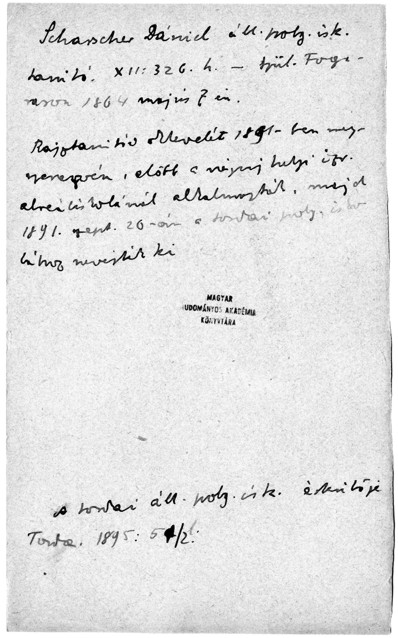 Scharscher Dániel áll. polg. isk.
tanitó. XII: 326. h. – Szül. Foga-
rason 1864 május 7 én.
Rajztanitói oklevelét 1891-ben meg-
nyerezvén, előbb a helyi izr.
alreáliskolánál alkalmazták, majd
1891. szept. 20-án a tordai polg. isko-
lához nevezték ki
MAGYAR
TUDOMÁNYOS AKADÉMIA
KÖNYVTÁRA
A tordai áll. polg. isk. értesitője
Torda. 1895: